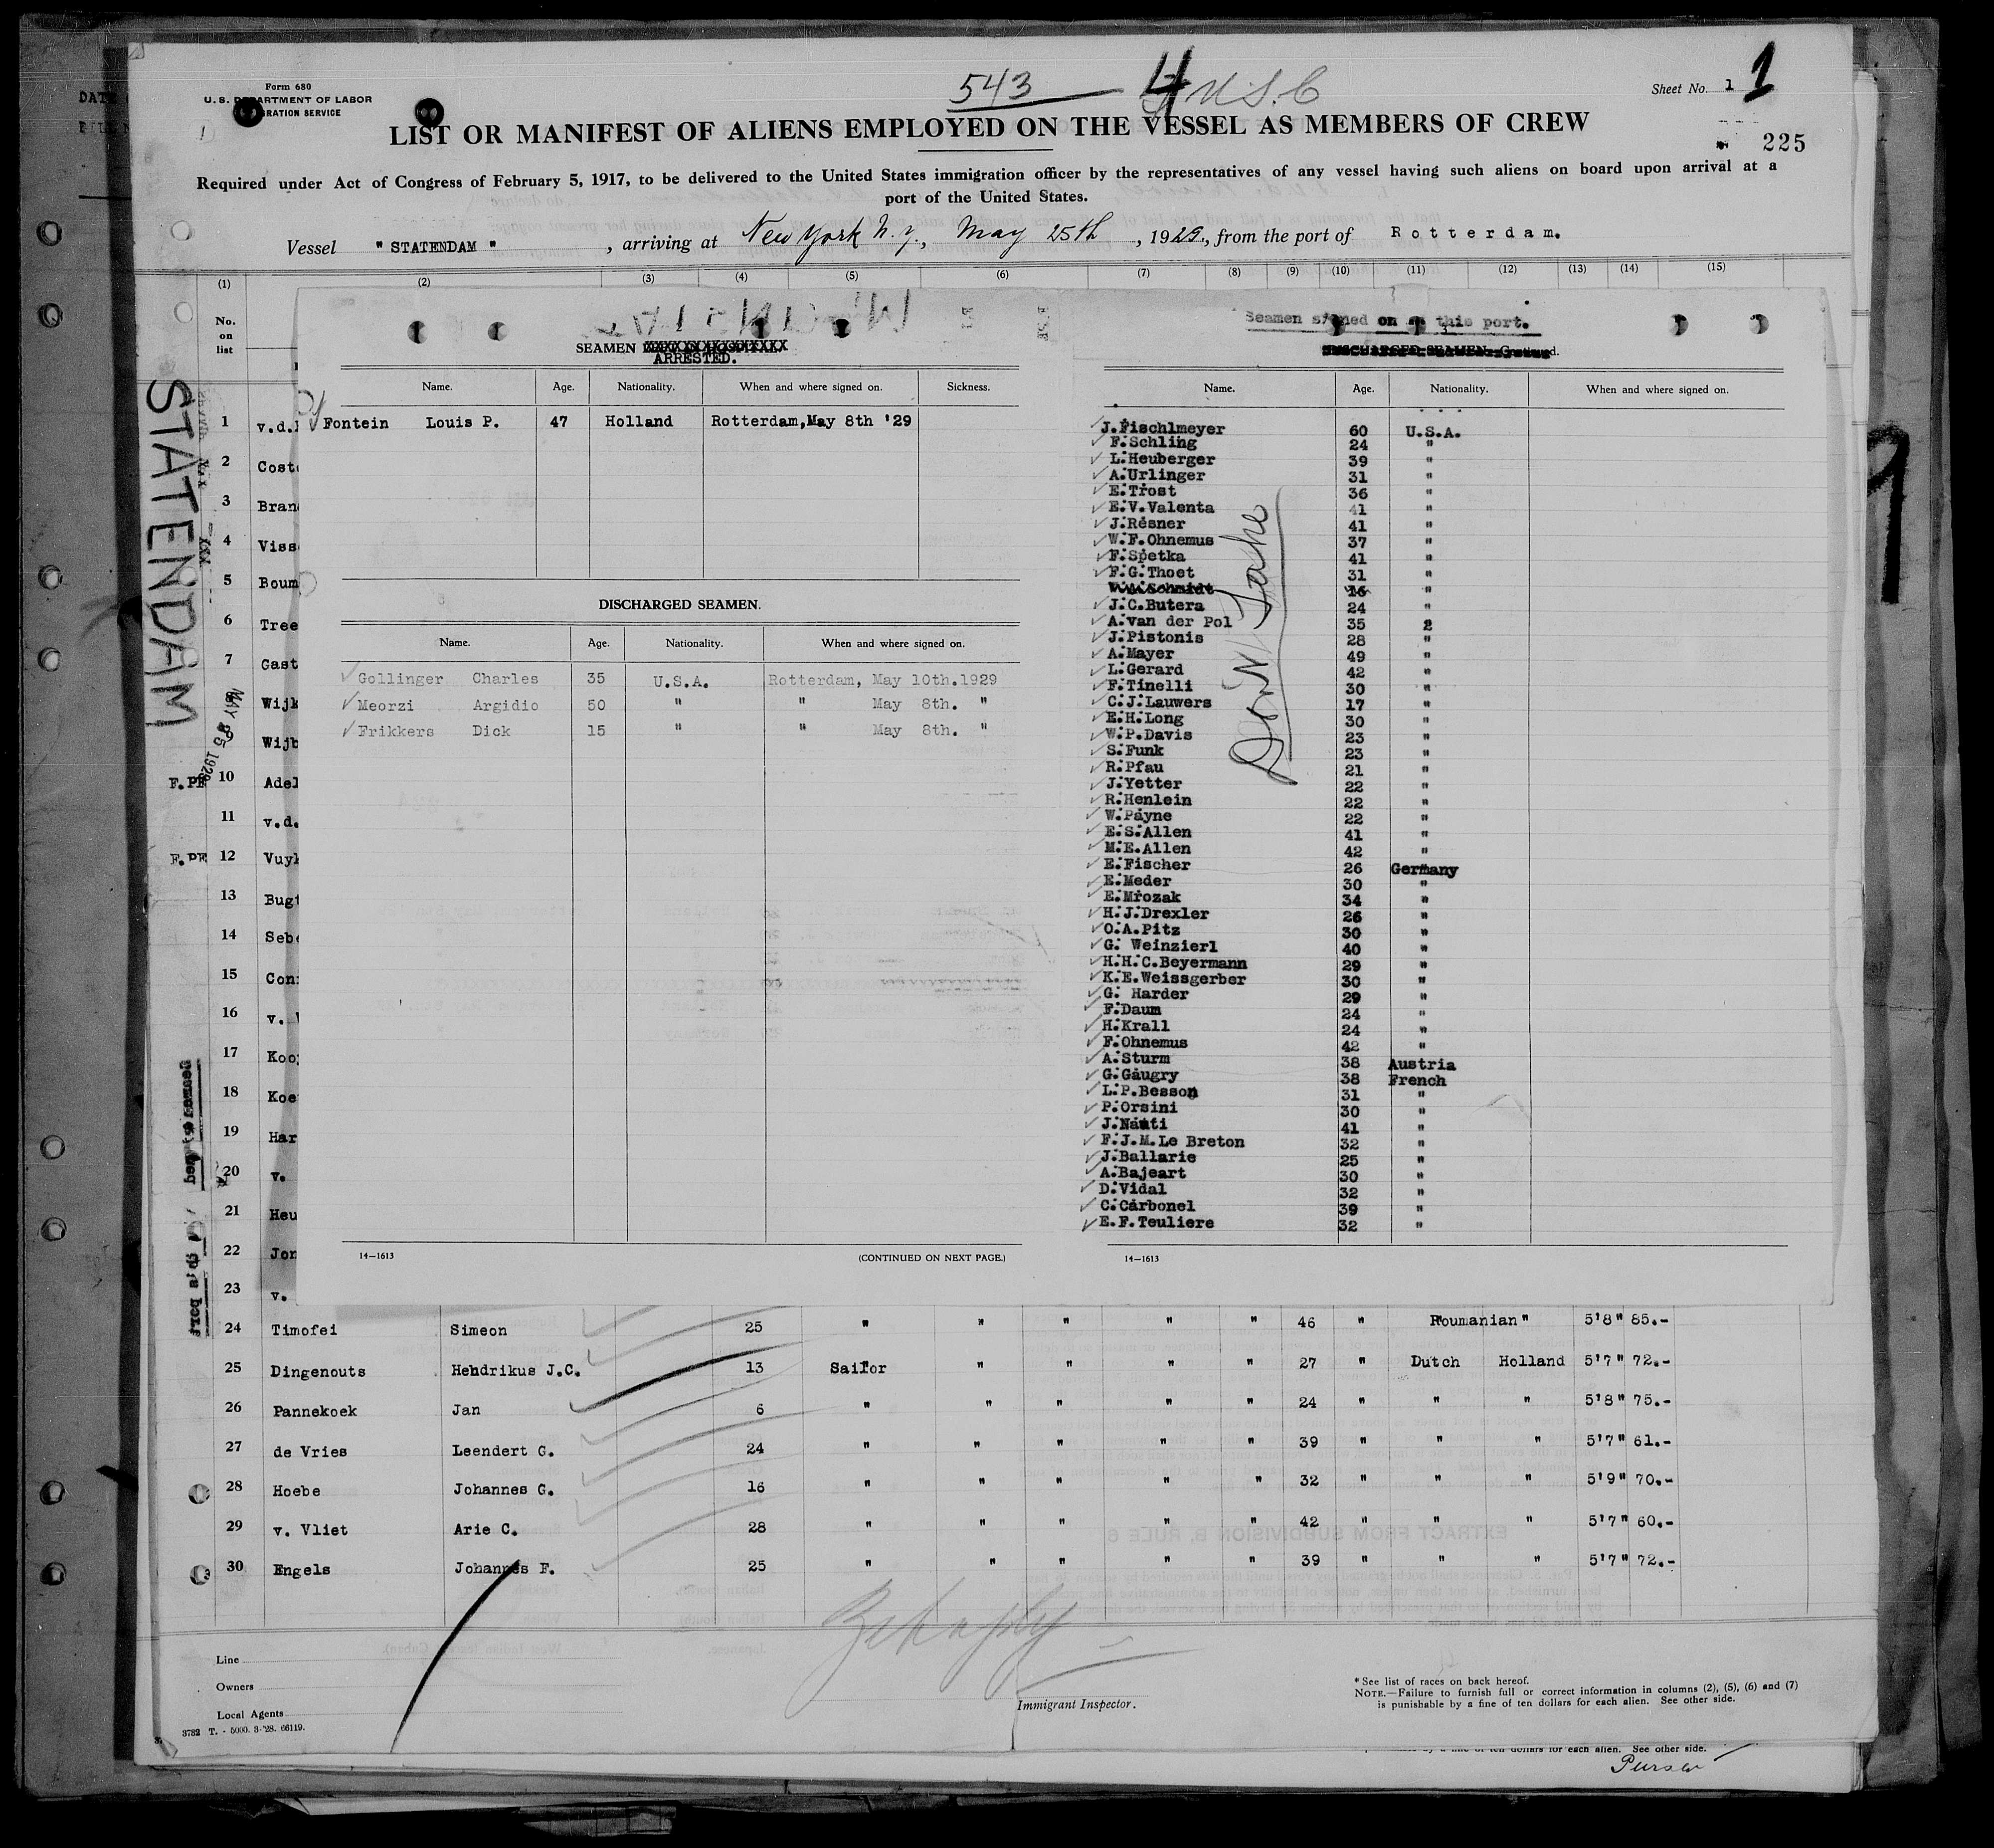 543 4 U.S.C
Form 680
U. S. DEPARTMENT OF LABOR
IMMIGRATION SERVICE
Sheet No. 1 1
LIST OR MANIFEST OF ALIENS EMPLOYED ON THE VESSEL AS MEMBERS OF CREW
225
Required under Act of Congress of February 5, 1917, to be delivered to the United States immigration officer by the representatives of any vessel having such aliens on board upon arrival at a
port of the United States.
Vessel " STATENDAM " , arriving at New York N.Y., May 25th, 1929, from the port of Rotterdam.
(1) (2) (3) (4) (5) (6) (7) (8) (9) (10) (11) (12) (13) (14) (15)
No. on list
STATENDAM
MAY 25 1929
1 v.d.
2 Cost
3 Bran
4 Viss
5 Boum
6 Tree
7 Gast
Wijk
Wijb
10 Adel
11 v.d.
12 Vuyk
13 Bugt
14 Seb
15 Con
16 v.
17 Koo
18 Koe
19 Har
20 v.
21 Heu
22 Jon
23 v.
SEAMEN
ARRESTED.
Name. Age. Nationality. When and where signed on. Sickness.
Fontein Louis P. 47 Holland Rotterdam,May 8th '29
DISCHARGED SEAMEN.
Name. Age. Nationality. When and where signed on.
Gollinger Charles 35 U.S.A. Rotterdam, May 10th.1929
Meorzi Argidio 50 " " May 8th. "
Frikkers Dick 15 " " May 8th. "
14—1613 (CONTINUED ON NEXT PAGE.)
Seamen signed on in this port.
Name. Age. Nationality. When and where signed on.
J.Fischlmeyer 60 U.S.A.
F.Schling 24 "
L.Heuberger 39 "
A.Urlinger 31 "
E.Trost 36 "
E.V.Valenta 41 "
J.Resner 41 "
W.F.Ohnemus 37 "
F.Spetka 41 "
F.G.Thoet 31 "
W.A.Schmidt 16 "
J.C.Butera 24 "
A.van der Pol 35 "
J.Pistonis 28 "
A.Mayer 49 "
L.Gerard 42 "
F.Tinelli 30 "
C.J.Lauwers 17 "
E.H.Long 30 "
W.P.Davis 23 "
S.Funk 23 "
R.Pfau 21 "
J.Yetter 22 "
R.Henlein 22 "
W.Payne 22 "
E.S.Allen 41 "
M.E.Allen 42 "
E.Fischer 26 Germany
E.Meder 30 "
E.Mrozak 34 "
H.J.Drexler 26 "
O.A.Pitz 30 "
G. Weinzierl 40 "
H.H.C.Beyermann 29 "
K.E.Weissgerber 30 "
G. Harder 29 "
F.Daum 24 "
H.Krall 24 "
F.Ohnemus 42 "
A.Sturm 38 Austria
G.Gaugry 38 French
L.P.Besson 31 "
P.Orsini 30 "
J.Nauti 41 "
F.J.M.Le Breton 32 "
J.Ballarie 25 "
A.Bajeart 30 "
D.Vidal 32 "
C.Carbonel 39 "
E.F.Teuliere 32 "
14—1613
24 Timofei Simeon 25 " " " " " 46 " Roumanian " 5'8" 85.-
25 Dingenouts Hendrikus J.C. 13 Sailor " " " " 27 " Dutch Holland 5'7" 72.-
26 Pannekoek Jan 6 " " " " " 24 " " " 5'8" 75.-
27 de Vries Leendert G. 24 " " " " " 39 " " " 5'7" 61.-
28 Hoebe Johannes G. 16 " " " " " 32 " " " 5'9" 70.-
29 v. Vliet Arie C. 28 " " " " " 42 " " " 5'7" 60.-
30 Engels Johannes F. 25 " " " " " 39 " " " 5'7" 72.-
Line
Owners
Local Agents
3782 T. - 5000. 3-'28. 66119.
Immigrant Inspector.
* See list of races on back hereof.
NOTE.—Failure to furnish full or correct information in columns (2), (5), (6) and (7)
is punishable by a fine of ten dollars for each alien. See other side.
ten dollars for each alien. See other side.
Purser